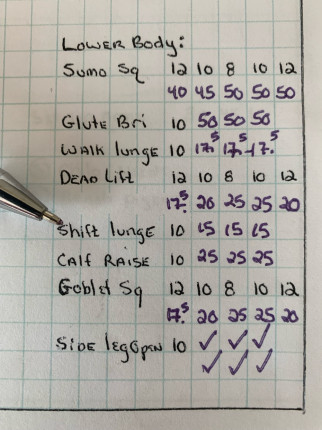 Lower Body:
Sumo Sq 12 10 8 10 12
40 45 50 50 50
Glute Bri 10 50 50 50
Walk lunge 10 17.5 17.5 17.5
Dead Lift 12 10 8 10 12
17.5 20 25 25 20
Shift lunge 10 15 15 15
Calf Raise 10 25 25 25
Goblet Sq 12 10 8 10 12
17.5 20 25 25 20
Side leg Open 10 ✓ ✓ ✓
✓ ✓ ✓